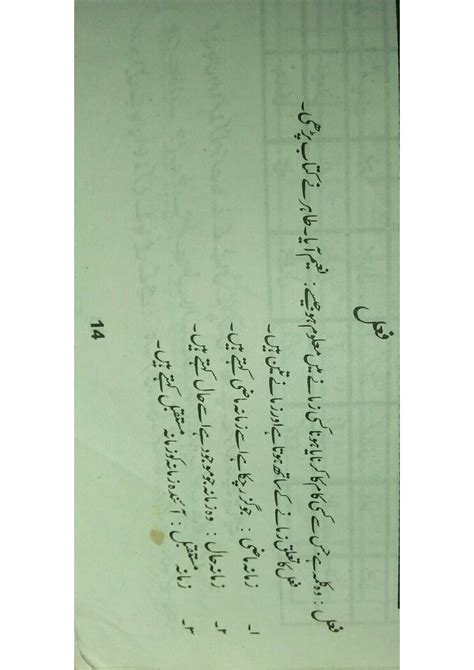 فعل
فعل : وہ کلمہ ہے جس سے کسی کام کا کرنا یا ہونا کسی زمانے میں معلوم ہو جیسے : نعیم آیا۔ طاہر نے کتاب پڑھی۔
فعل کا تعلق زمانے کے ساتھ ہوتا ہے اور زمانے تین ہیں۔
۱۔ زمانہ ماضی : جو گزر چکا ہے اسے زمانہ ماضی کہتے ہیں۔
۲۔ زمانہ حال : وہ زمانہ جو موجود ہے اسے حال کہتے ہیں۔
۳۔ زمانہ مستقبل : آئندہ زمانہ کو زمانہ مستقبل کہتے ہیں۔
14